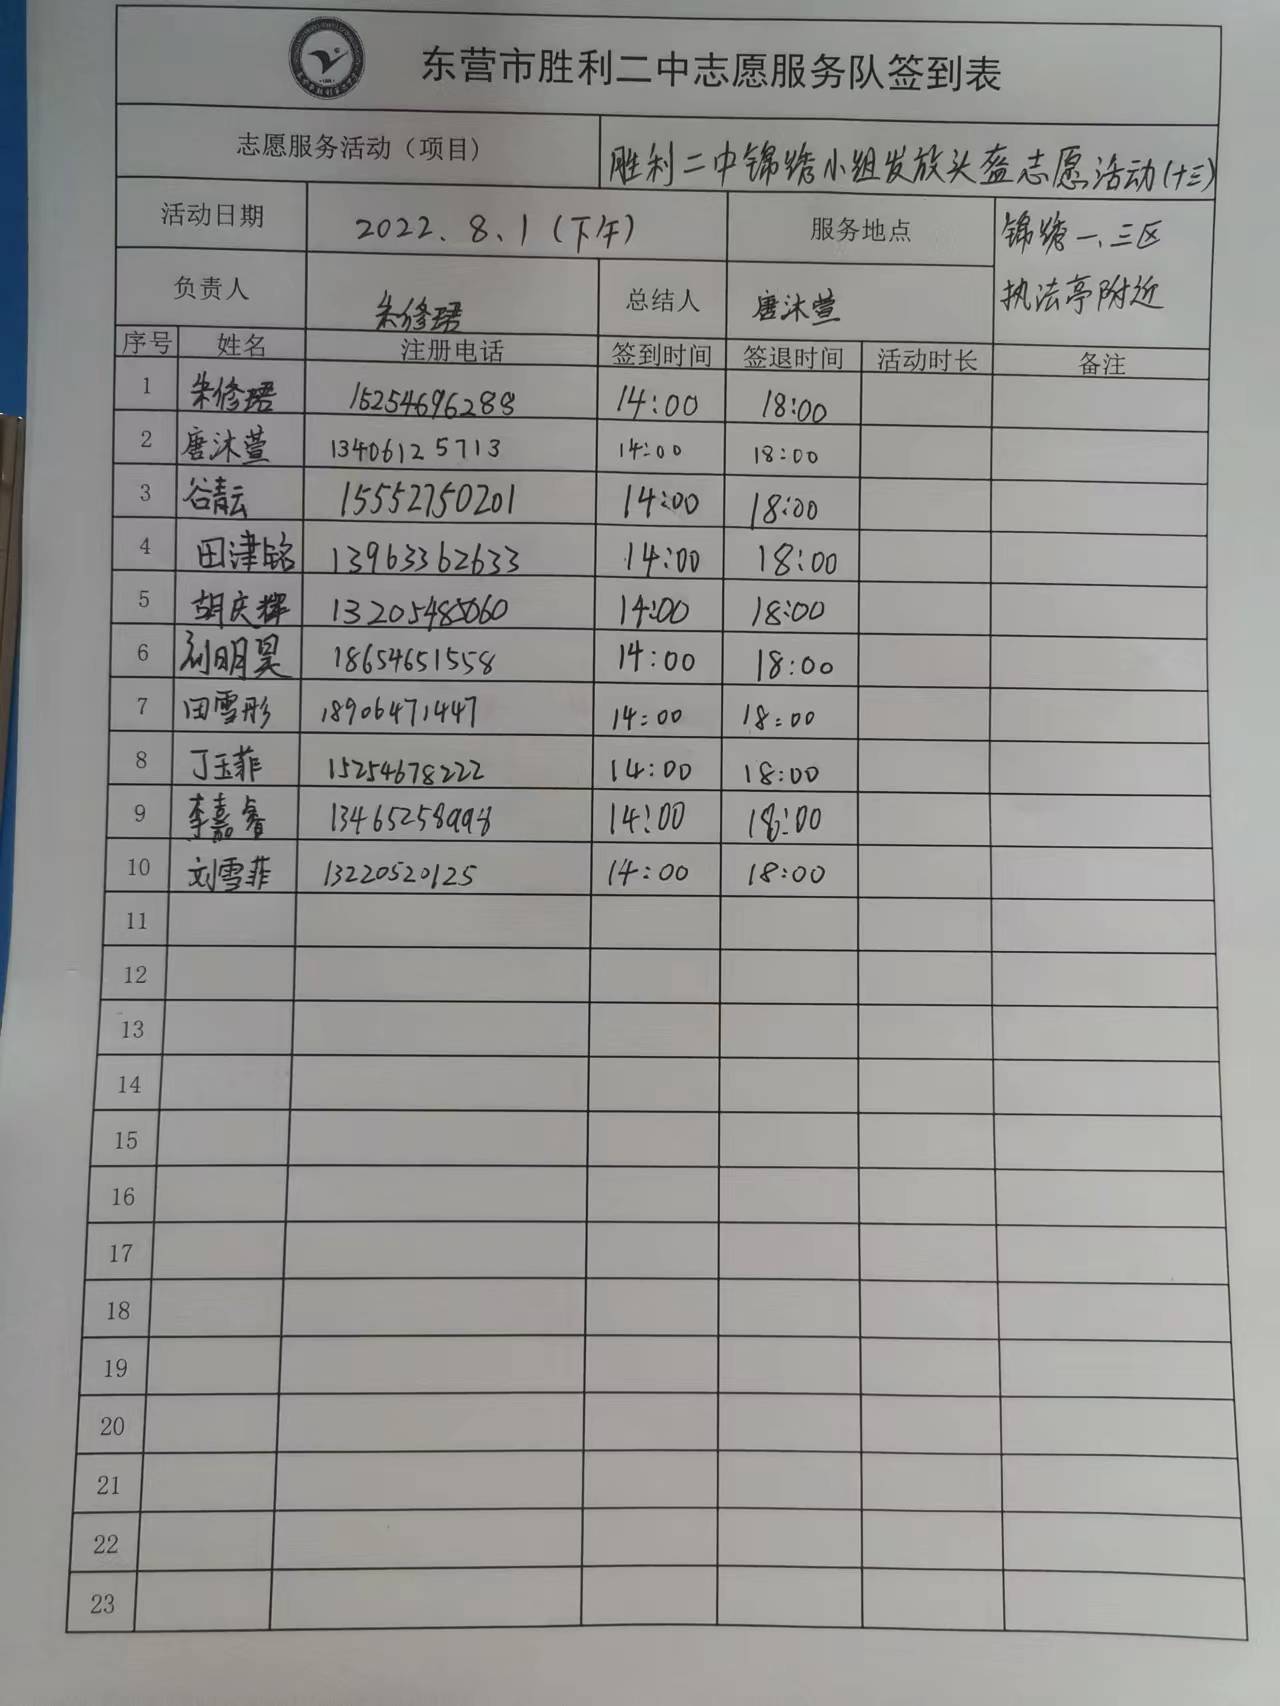 东营市胜利二中志愿服务队签到表
志愿服务活动（项目） 胜利二中锦绣小组发放头盔志愿活动(十三)
活动日期 2022.8.1(下午) 服务地点 锦绣一、三区
执法亭附近
负责人 朱修珺 总结人 唐沐萱
序号 姓名 注册电话 签到时间 签退时间 活动时长 备注
1 朱修珺 15254696288 14:00 18:00
2 唐沐萱 13406125713 14:00 18:00
3 谷青云 15552750201 14:00 18:00
4 田津铭 13963362633 14:00 18:00
5 胡庆辉 13205485060 14:00 18:00
6 刘明昊 18654651558 14:00 18:00
7 田雪彤 18906471447 14:00 18:00
8 丁玉菲 15254678222 14:00 18:00
9 李嘉睿 13465258998 14:00 18:00
10 刘雪菲 13220520125 14:00 18:00
11
12
13
14
15
16
17
18
19
20
21
22
23